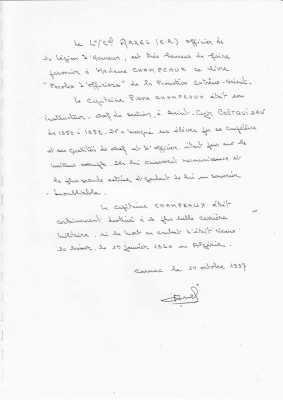 Le Lt/Cl (E.R) officier de
la légion d'Honneur, est très heureux de faire
parvenir à Madame CHAMPEAUX ce livre
"Paroles d'officiers" de la Promotion Extrême-Orient.
Le Capitaine Pierre CHAMPEAUX était son
instructeur, chef de section, à Saint-Cyr COËTQUIDAN
de 1950 - 1952. Il a marqué ses élèves par sa
et ses qualités de chef et d'officier. était pour eux le
meilleur exemple. Ils lui conservent reconnaissance et
la plus grande estime et gardent de lui un souvenir
inoubliable.
Le capitaine CHAMPEAUX était
certainement destiné à la plus belle carrière
militaire si la mort au combat n'était venue
le briser, le janvier 1960 en Algérie.
Carnac le octobre 1997